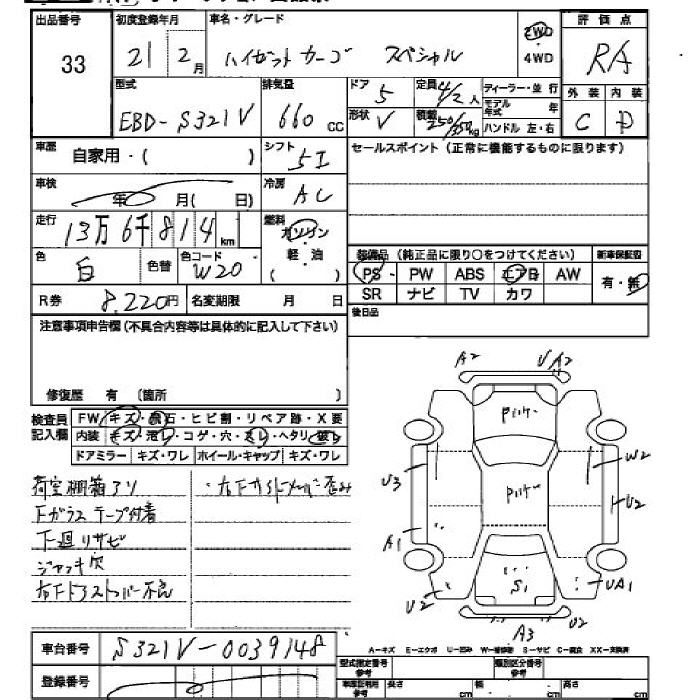 出品番号 初度登録年月 車名・グレード 評価点
33 21 2月 ハイゼットカーゴ スペシャル 2WD 4WD RA
型式 排気量 ドア 定員 ディーラー・並行 外装 内装
EBD-S321V 660cc 5 4/2人 モデル年式 年 C D
形状 V 積載 250/350kg ハンドル 左・右
車歴 自家用・( ) シフト 5I セールスポイント(正常に機能するものに限ります)
車検 年 月( 日) 冷房 AC
走行 13万6千814km 燃料 ガソリン
軽・油
( )
色 白 色替 色コード W20
装備品(純正品に限り○をつけてください) 新車保証書
PS PW ABS エアB AW 有・無
SR ナビ TV カワ
R券 8,220円 名変期限 月 日
後日品
注意事項申告欄(不具合内容等は具体的に記入して下さい)
修復歴 有 (箇所 )
検査員記入欄 FW キズ・飛石・ヒビ割・リペア跡・X要
内装 キズ・汚レ・コゲ・穴・スレ・ヘタリ・破レ
ドアミラー キズ・ワレ ホイール・キャップ キズ・ワレ
荷室棚箱アリ
Fガラス テープ付着
下廻リサビ
ジャッキ欠
右Fドアストッパー不良
A2 UA2
U3 W2
U2
A1
U2 S1 UA1
A3
車台番号 S321V-0039148
A-キズ E-エクボ U-凹み W-補修跡 S-サビ C-腐食 XX-交換済
登録番号
型式指定番号 類別区分番号
参考 長さ cm 幅 cm 高さ cm